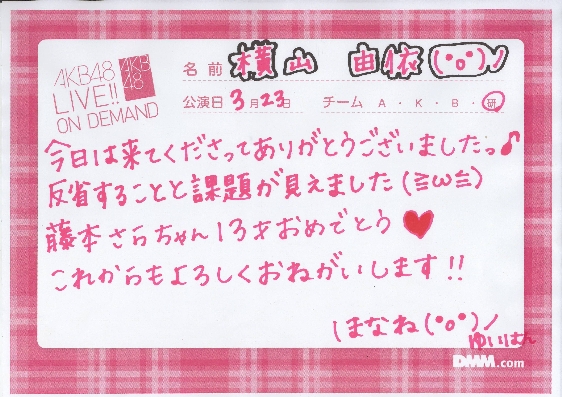 AKB48
LIVE!!
ON DEMAND
AKB
48
名前 横山 由依(°o°)ノ
公演日 3月23日 チーム A・K・B・研
今日は来てくださってありがとうございましたっ♪
反省することと課題が見えました(≧ω≦)
藤本さらちゃん13才おめでとう♥
これからもよろしくおねがいします!!
ほなね(°o°)ノ
ゆいはん
DMM.com